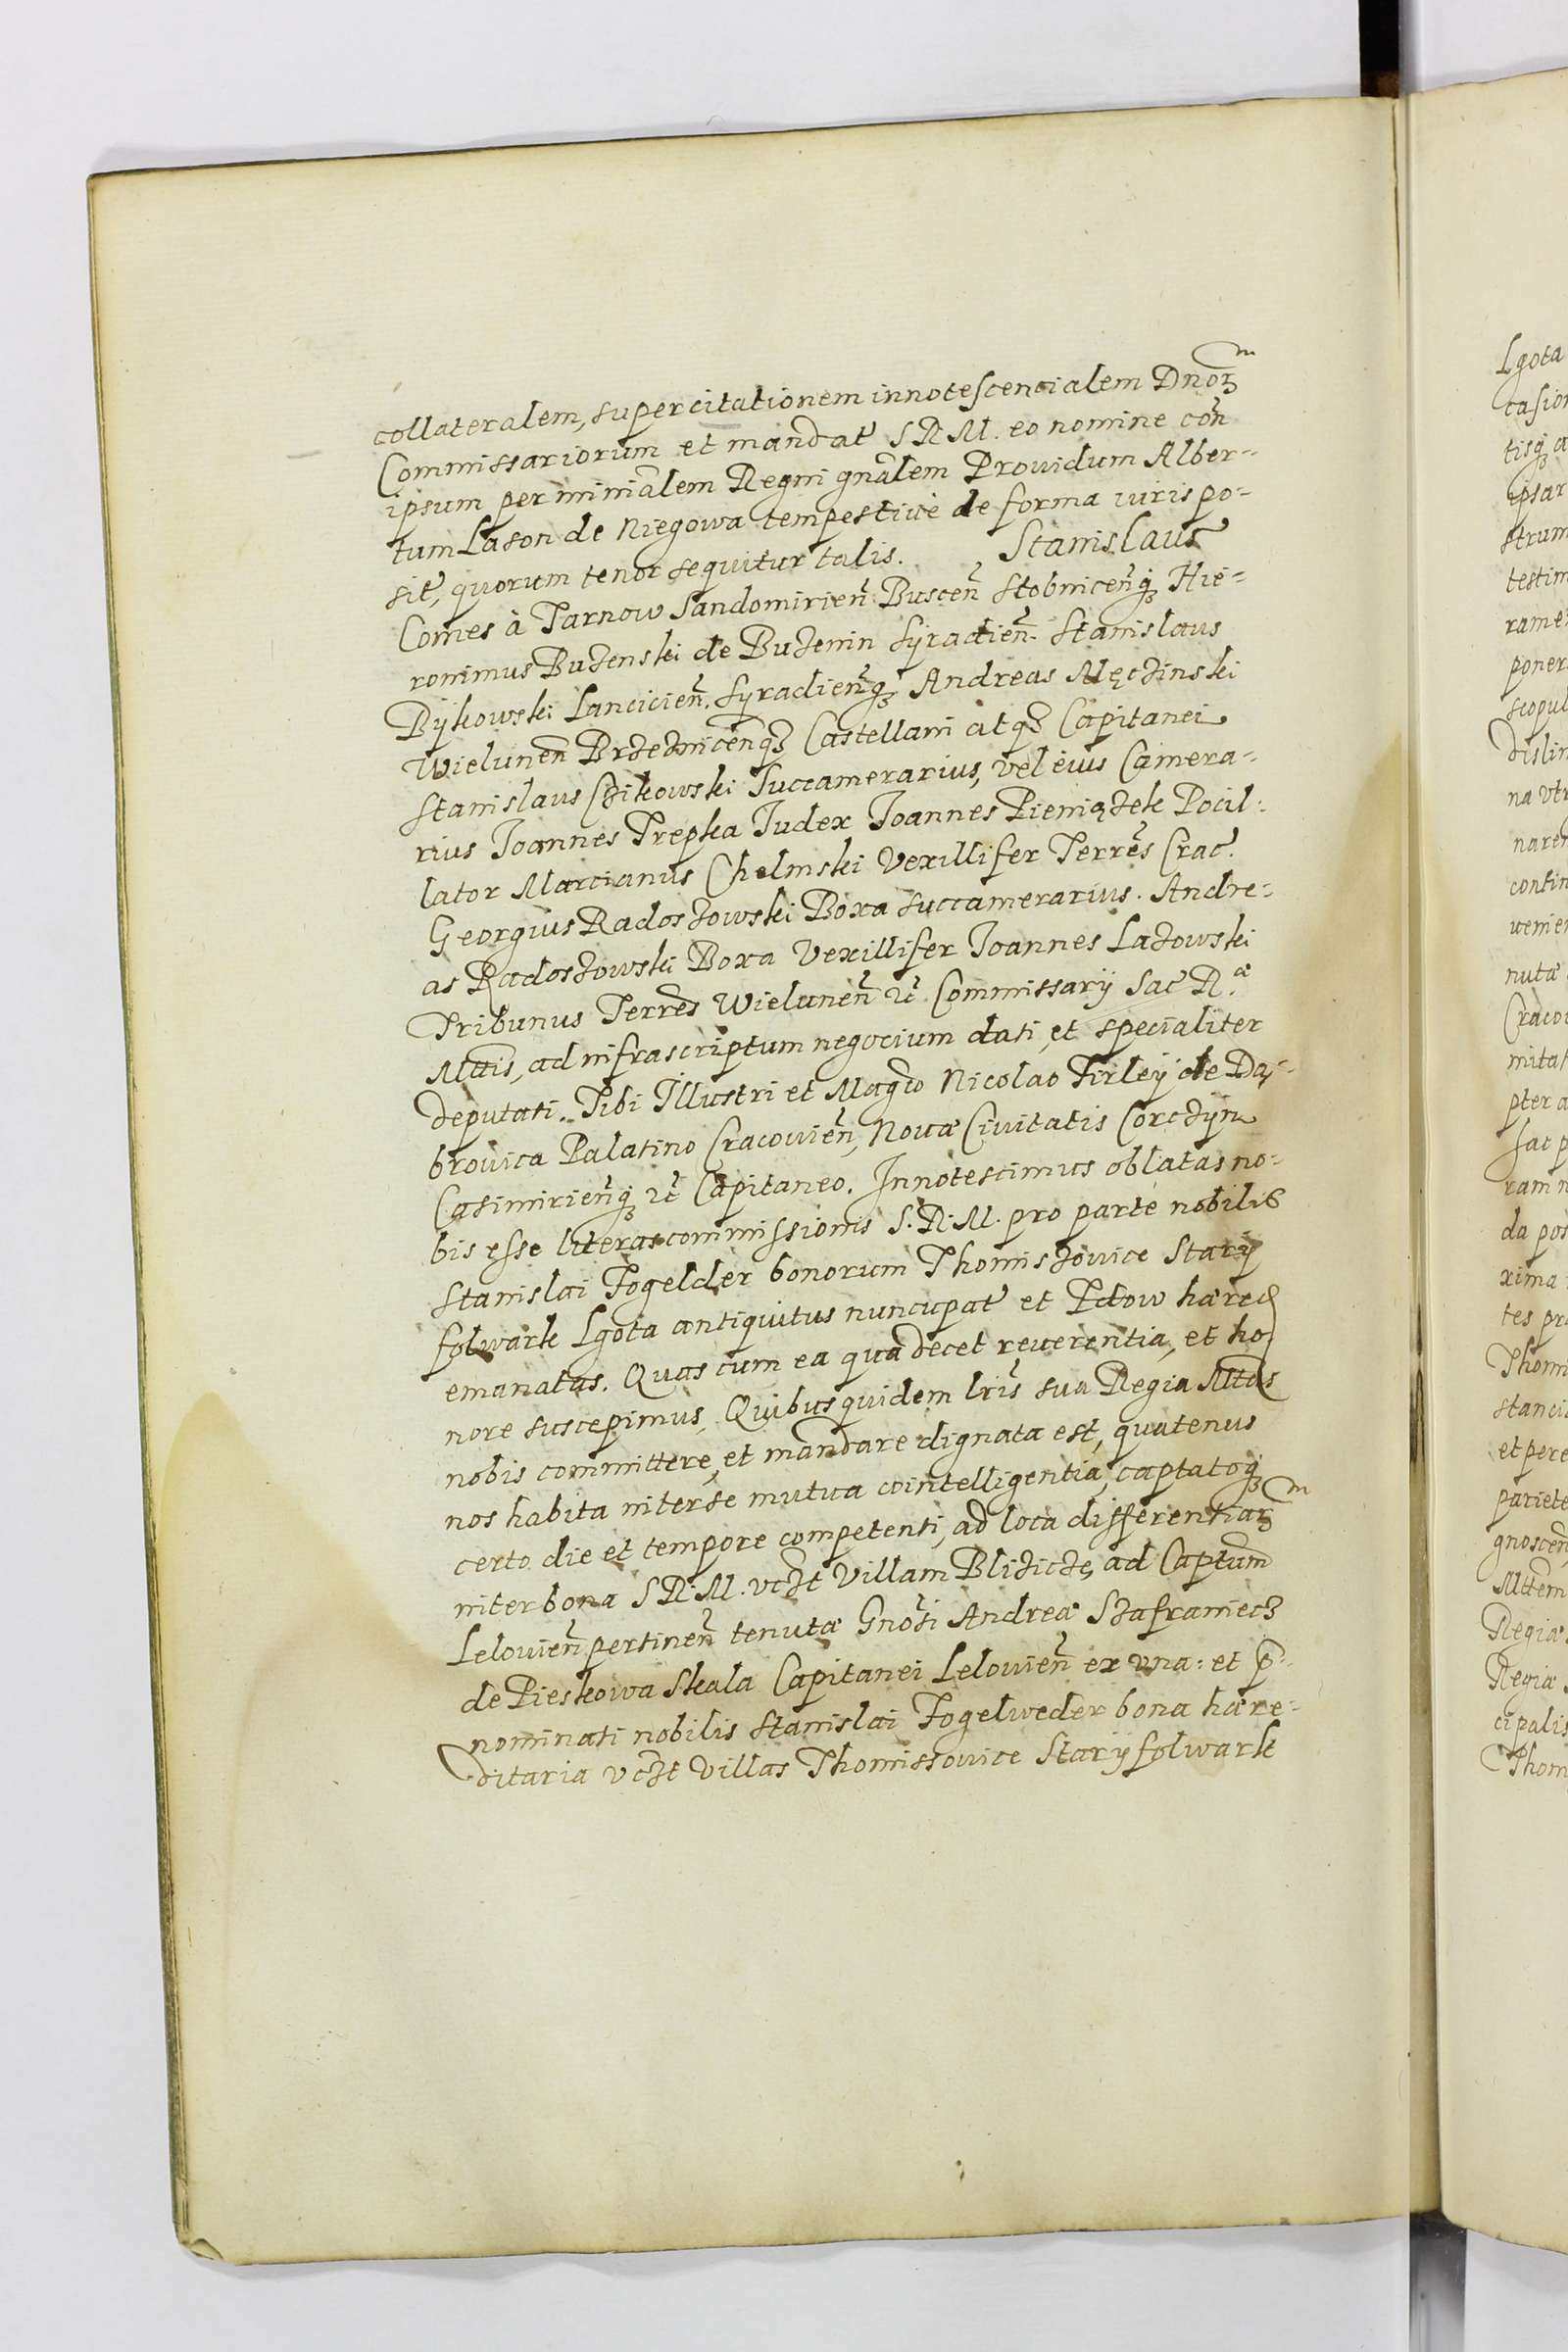 collateralem, super citationem innotescentialem Dnoꝝ
Commissariorum et mandat S R M. eo nomine con
ipsum per minĩalem Regni gnãlem Prouidum Alber-
tum Lason de Niegowa tempestiuè de forma iuris po-
sit, quorum tenor sequitur talis. Stanislaus
Comes à Tarnow Sandomirien̄ Buscen̄ Stobnicen̄qꝫ Hie-
ronimus Buzenski de Buzenin Syradien̄. Stanislaus
Bÿkowski Lancicien̄. Syradien̄qꝫ Andreas Męczinski
Wielunen̄ Brzeznicen̄qꝫ Castellani atqꝫ Capitanei
Stanislaus Czikowski Succamerarius, vel eius Camera-
rius Joannes Trepka Judex Joannes Pieniązek Pocil-
lator Marcianus Chelmski Vexillifer Terrẽs Crac.
Georgius Radoszowski Boxa Succamerarius. Andre-
as Radoszowski Boxa Vexillifer Joannes Lazowski
Tribunus Terrẽs Wielunen̄ ꝛc̄ Commissarÿ Sac R.æ
Mttis, ad infrascriptum negocium dati, et specialiter
deputati. Tibi Illustri et Magco Nicolao Firleÿ de Dą-
browica Palatino Cracouien̄, Nouæ Ciuitatis Corczÿn
Casimirien̄qꝫ ꝛc̄ Capitaneo. Innotescimus oblatas no-
bis esse literas commissionis S. R. M. pro parte nobilis
Stanislai Fogelder bonorum Thomiszowice Starÿ
folwark Lgota antiquitus nuncupat et Pdow hæred
emanatas. Quas cum ea qua decet reuerentia, et ho
nore suscepimus, Quibus quidem lr̃is sua Regia Mttas
nobis committere, et mandare dignata est, quatenus
nos habita inter se mutua cointelligentia, captatoqꝫ
certo die et tempore competenti, ad loca differentiaꝝ
inter bona S R. M. vczt Villam Bliziczę ad Captum
Lelouien̄ pertinen̄ tenutæ Gnosi Andreæ Szafraniecz
de Pieskowa Skala Capitanei Lelouien̄ ex vna: et p-
nominati nobilis Stanislai Fogelweder bona hære-
ditaria vczt Villas Thomissowice Starÿ folwark
Lgota